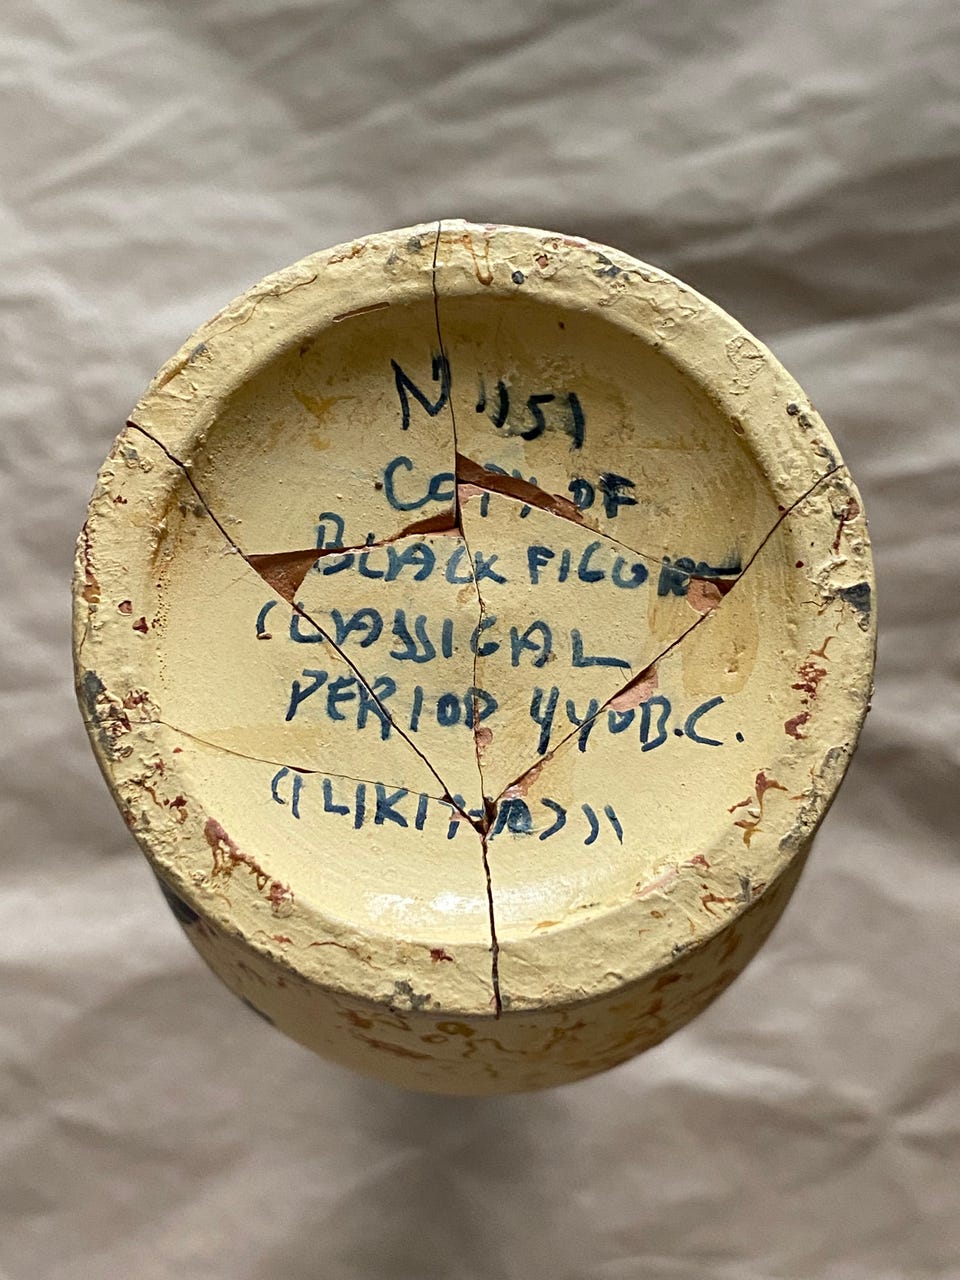 N 1151
COPY OF
BLACK FIGURE
CLASSICAL
PERIOD 440 B.C.